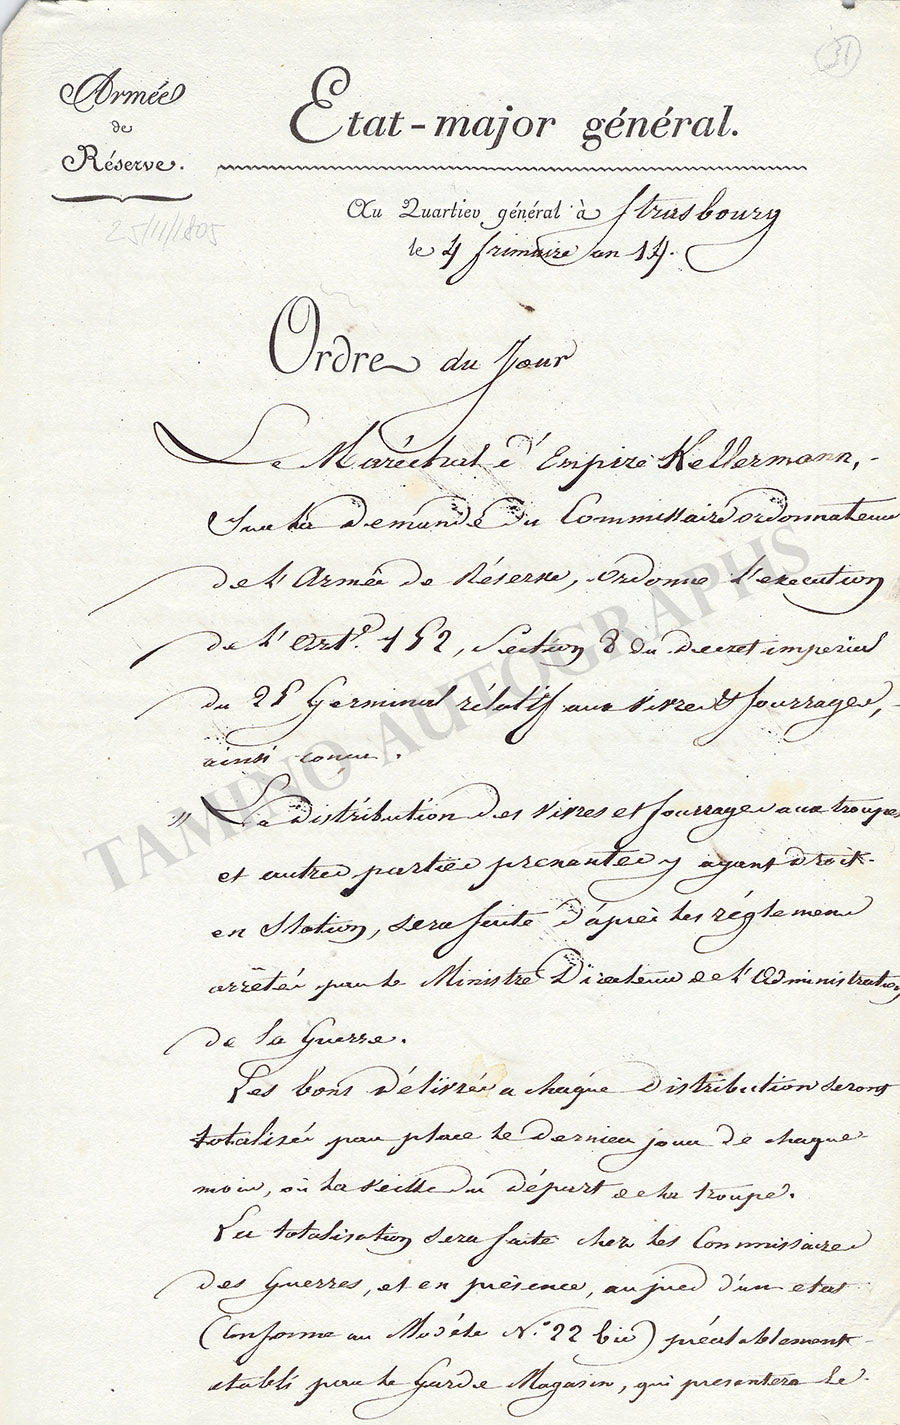 31
Armée
de
Réserve.
Etat-major général.
25/11/1805
Au Quartier général à Strasbourg
le 4 frimaire an 14.
Ordre du Jour
Le Maréchal d'Empire Kellermann,
Sur la demande du Commissaire ordonnateur
de l'Armée de Réserve, ordonne l'execution
de l'Art.e 152, Section 8 du decret imperial
du 25 Germinal rélatif aux vivres & fourrages,
ainsi concu.
" La distribution des vivres et fourrages aux troupes
et autres parties prenantes y ayant droit
en Station, sera faite d'après les réglemens
arrêtés par le Ministre Directeur de l'Administration
de la Guerre.
Les bons délivrés a chaque distribution seront
totalisés par place le dernier jour de chaque
mois, où la veille du départ de la troupe.
La totalisation sera faite chez les Commissaires
des Guerres, et en presence, au pied d'un etat
(Conforme au Modéle N.o 22 bis) préalablement
etabli par le Garde Magasin, qui presentera le
TAMINO AUTOGRAPHS